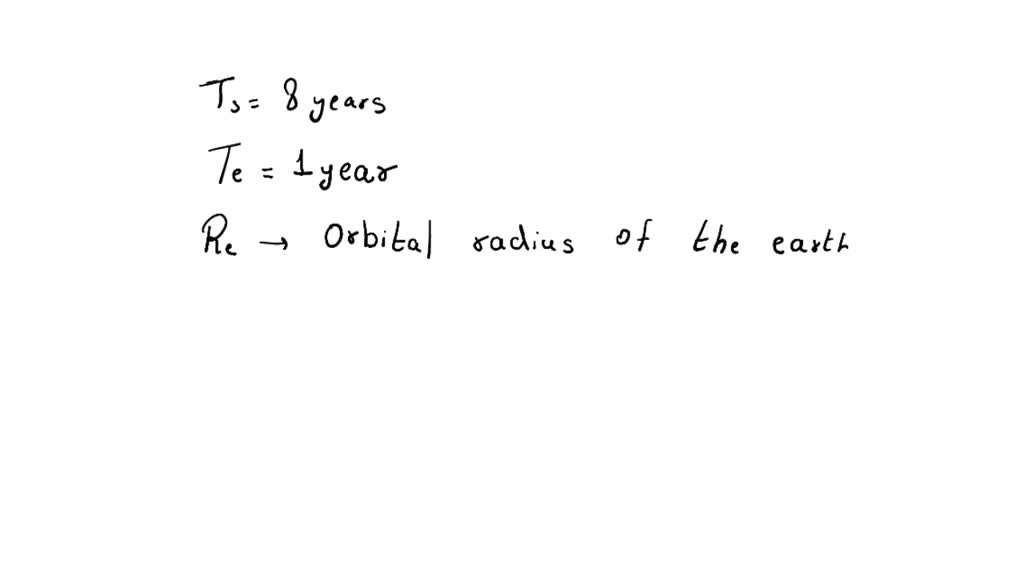 Ts = 8 years
Te = 1 year
Re → Orbital radius of the earth